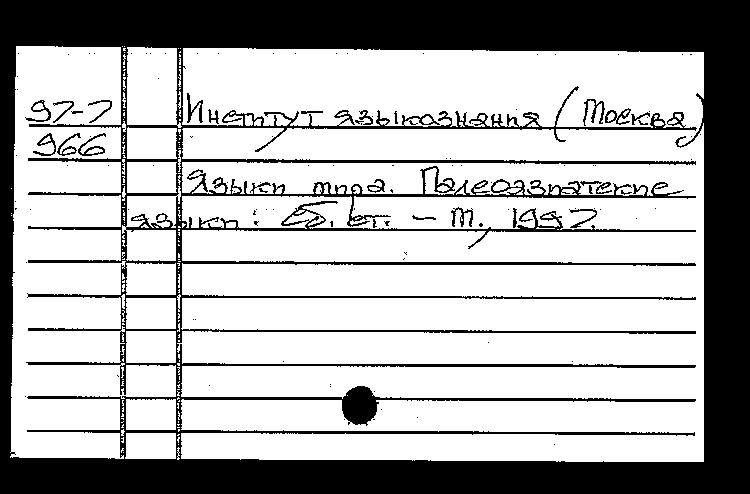 97-7 Институт языкознания (Москва)
966
Языки мира. Палеоазиатские
языки : Сб. ст. - М., 1997.